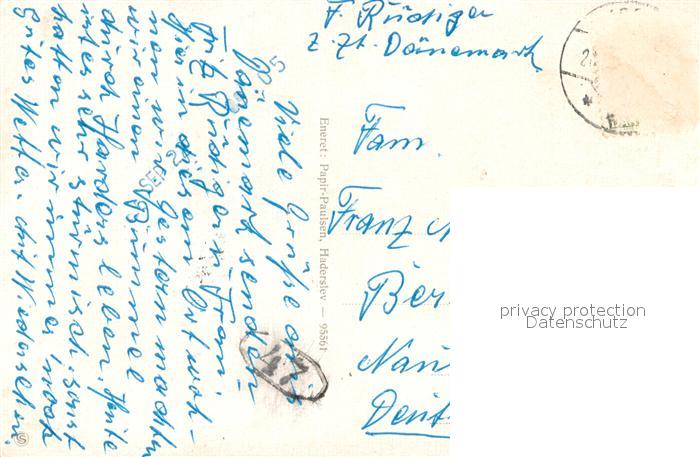 F. Rüdiger
z. Zt. Dänemark
Fam.
Franz
Ber
Nau
Deut
Eneret: Papir-Paulsen, Haderslev — 95561
Viele Grüße aus
Dänemark senden
Fritz Rüdiger u. Frau.
Hier in diesem Ort woh-
nen wir. Gestern machten
wir einen Bummel
durch Haderslebe. Heute
ist es sehr stürmisch. sonst
hatten wir immer noch
gutes Wetter. Auf Wiedersehen.
privacy protection
Datenschutz